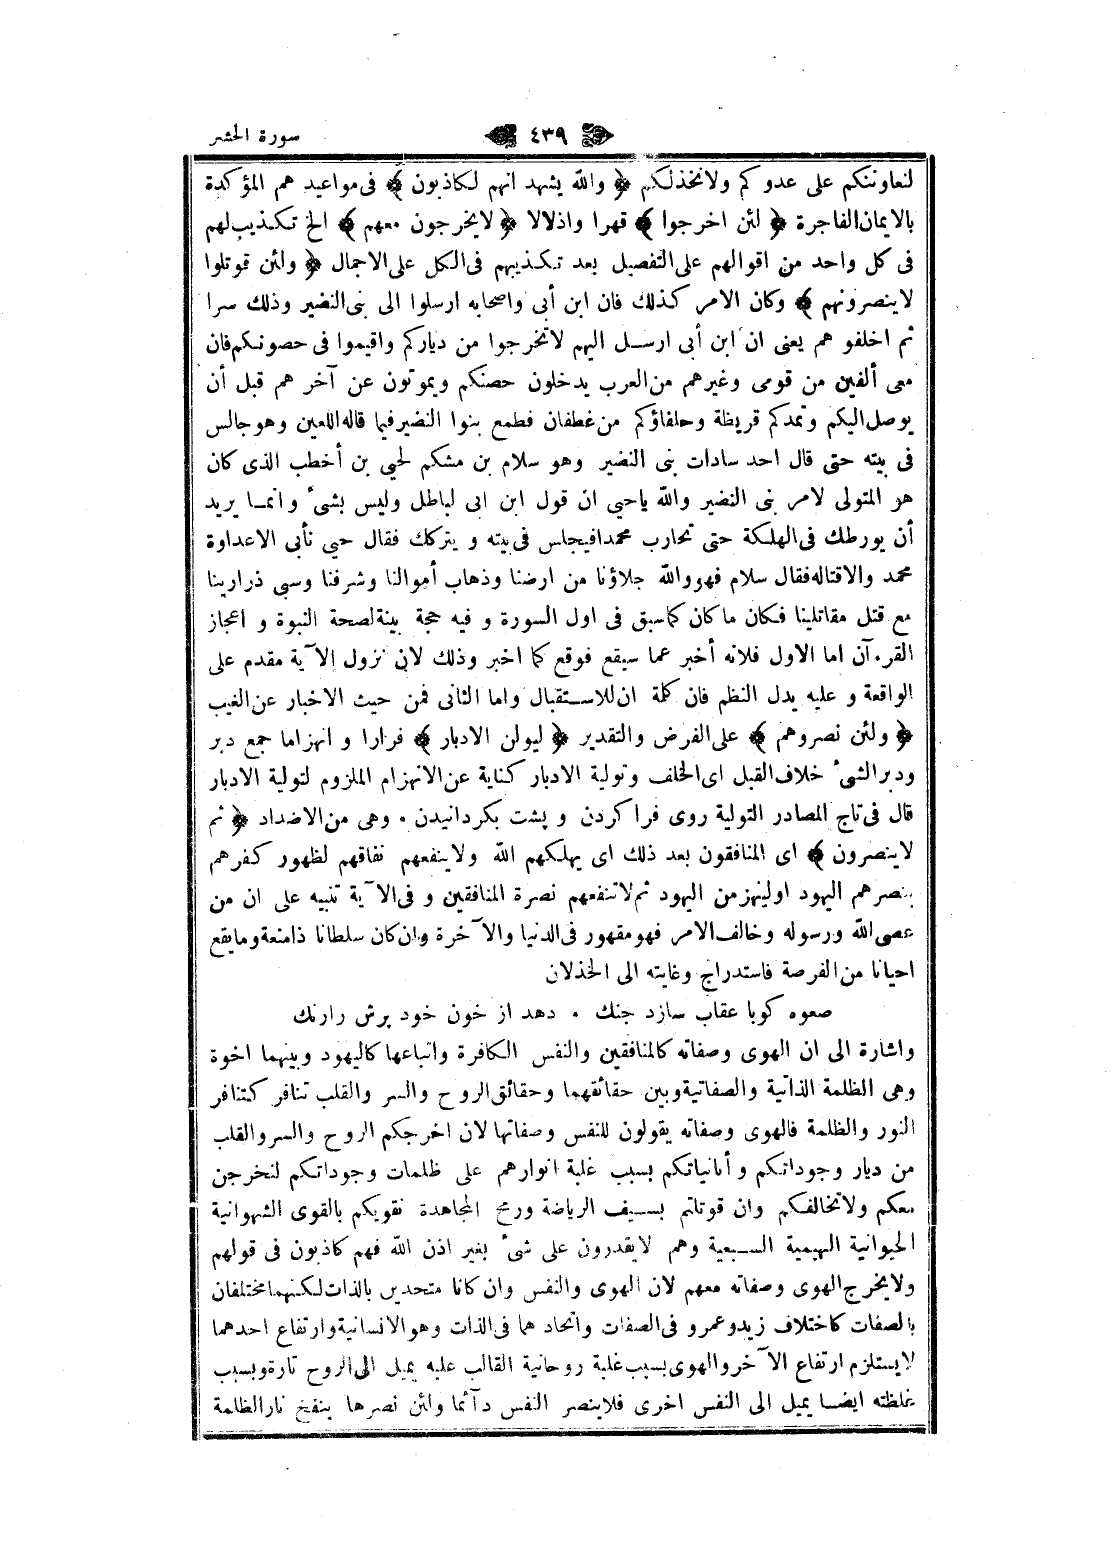 سورة الحشر ﴿ ٤٣٩ ﴾
لنعاوننكم على عدوكم ولانخذلكم ﴿ والله يشهد انهم لكاذبون ﴾ فى مواعيد هم المؤكدة
بالايمان الفاجرة ﴿ لئن اخرجوا ﴾ قهرا واذلالا ﴿ لايخرجون معهم ﴾ الخ تكذيب لهم
فى كل واحد من اقوالهم على التفصيل بعد تكذيبهم فى الكل على الاجمال ﴿ ولئن قوتلوا
لاينصرونهم ﴾ وكان الامر كذلك فان ابن أبى واصحابه ارسلوا الى بنى النضير وذلك سرا
ثم اخلفو هم يعنى ان ابن أبى ارسل اليهم لاتخرجوا من دياركم واقيموا فى حصونكم فان
معى ألفين من قومى وغيرهم من العرب يدخلون حصنكم ويموتون عن آخر هم قبل أن
يوصل اليكم وتمدكم قريظة وحلفاؤكم من غطفان فطمع بنوا النضير فيما قاله اللعين وهو جالس
فى بيته حتى قال احد سادات بنى النضير وهو سلام بن مشكم لحيي بن أخطب الذى كان
هو المتولى لامر بنى النضير والله ياحيي ان قول ابن ابى لباطل وليس بشىء وانما يريد
أن يورطك فى الهلكة حتى تحارب محمدا فيجلس فى بيته و يتركك فقال حيي نأبى الاعداوة
محمد والاقتاله فقال سلام فهو والله جلاؤنا من ارضنا وذهاب أموالنا وشرفنا وسبى ذرارينا
مع قتل مقاتلينا فكان ما كان كماسبق فى اول السورة و فيه حجة بينة لصحة النبوة و اعجاز
القرءآن اما الاول فلانه أخبر عما سيقع فوقع كما اخبر وذلك لان نزول الآية مقدم على
الواقعة و عليه يدل النظم فان كلمة ان للاستقبال واما الثانى فمن حيث الاخبار عن الغيب
﴿ ولئن نصروهم ﴾ على الفرض والتقدير ﴿ ليولن الادبار ﴾ فرارا و انهزاما جمع دبر
ودبر الشىء خلاف القبل اى الخلف وتولية الادبار كناية عن الانهزام الملزوم لتولية الادبار
قال فى تاج المصادر التولية روى فرا كردن و پشت بكردانيدن ٠ وهى من الاضداد ﴿ ثم
لاينصرون ﴾ اى المنافقون بعد ذلك اى يهلكهم الله ولاينفعهم نفاقهم لظهور كفرهم
بنصرهم اليهود اولينهزمن اليهود ثم لاتنفعهم نصرة المنافقين و فى الآية تنبيه على ان من
عصى الله ورسوله وخالف الامر فهو مقهور فى الدنيا والآخرة وان كان سلطانا ذامنعة ومايقع
احيانا من الفرصة فاستدراج وغايته الى الخذلان
صعوه كوبا عقاب سازد جنك ٠ دهد از خون خود پرش رارنك
واشارة الى ان الهوى وصفاته كالمنافقين والنفس الكافرة واتباعها كاليهود وبينهما اخوة
وهى الظلمة الذاتية والصفاتية وبين حقائقهما وحقائق الروح والسر والقلب تنافر كتنافر
النور والظلمة فالهوى وصفاته يقولون للنفس وصفاتها لان اخرجكم الروح والسر والقلب
من ديار وجوداتكم و أنانياتكم بسبب غلبة انوارهم على ظلمات وجوداتكم لنخرجن
معكم ولانخالفكم وان قوتلتم بسيف الرياضة ورمح المجاهدة نقويكم بالقوى الشهوانية
الحيوانية البهيمية السبعية وهم لايقدرون على شىء بغير اذن الله فهم كاذبون فى قولهم
ولايخرج الهوى وصفاته معهم لان الهوى والنفس وان كانا متحدين بالذات لكنهما مختلفان
بالصفات كاختلاف زيد وعمرو فى الصفات واتحاد هما فى الذات وهو الانسانية وارتفاع احدهما
لايستلزم ارتفاع الآخر والهوى بسبب غلبة روحانية القالب عليه يميل الى الروح تارة وبسبب
غلظته ايضا يميل الى النفس اخرى فلاينصر النفس دآئما ولئن نصرها بنفخ نار الظلمة